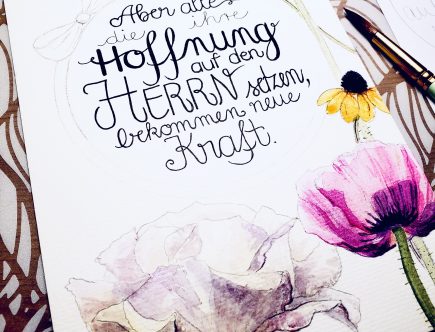 Aber alle,
die ihre
Hoffnung
auf den
HERRN setzen,
bekommen neue
Kraft.